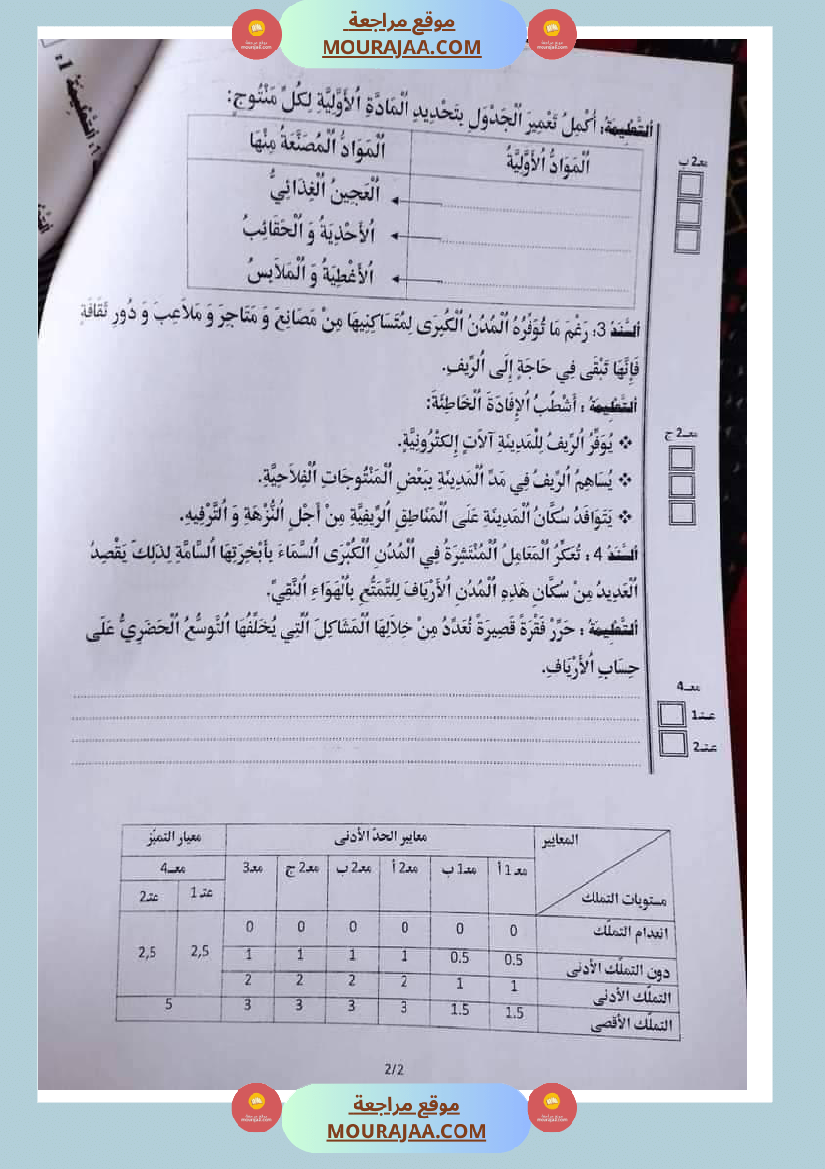 موقع مراجعة
MOURAJAA.COM
التَّعْلِيمَةُ: أُكْمِلُ تَعْمِيرَ الْجَدْوَلِ بِتَحْدِيدِ الْمَادَّةِ الْأَوَّلِيَّةِ لِكُلِّ مَنْتُوجٍ:
معـ2 ب
الْمَوَادُّ الْأَوَّلِيَّةُ الْمَوَادُّ الْمُصَنَّعَةُ مِنْهَا
الْعَجِينُ الْغِذَائِيُّ
الْأَحْذِيَةُ وَ الْحَقَائِبُ
الْأَغْطِيَةُ وَ الْمَلَابِسُ
السَّنَدُ 3: رَغْمَ مَا تُوَفِّرُهُ الْمُدُنُ الْكُبْرَى لِمُتَسَاكِنِيهَا مِنْ مَصَانِعَ وَ مَتَاجِرَ وَ مَلَاعِبَ وَ دُورِ ثَقَافَةٍ
فَإِنَّهَا تَبْقَى فِي حَاجَةٍ إِلَى الرِّيفِ.
التَّعْلِيمَةُ : أَشْطُبُ الْإِفَادَةَ الْخَاطِئَةَ:
معـ2 ج
❖ يُوَفِّرُ الرِّيفُ لِلْمَدِينَةِ آلَاتٍ إِلِكْتْرُونِيَّةٍ.
❖ يُسَاهِمُ الرِّيفُ فِي مَدِّ الْمَدِينَةِ بِبَعْضِ الْمَنْتُوجَاتِ الْفِلَاحِيَّةِ.
❖ يَتَوَافَدُ سُكَّانُ الْمَدِينَةِ عَلَى الْمَنَاطِقِ الرِّيفِيَّةِ مِنْ أَجْلِ النُّزْهَةِ وَ التَّرْفِيهِ.
السَّنَدُ 4 : تُعَكِّرُ الْمَعَامِلُ الْمُنْتَشِرَةُ فِي الْمُدُنِ الْكُبْرَى السَّمَاءَ بِأَبْخِرَتِهَا السَّامَّةِ لِذَلِكَ يَقْصِدُ
الْعَدِيدُ مِنْ سُكَّانِ هَذِهِ الْمُدُنِ الْأَرْيَافَ لِلتَّمَتُّعِ بِالْهَوَاءِ النَّقِيِّ.
التَّعْلِيمَةُ : حَرِّرْ فَقْرَةً قَصِيرَةً تُعَدِّدُ مِنْ خِلَالِهَا الْمَشَاكِلَ الَّتِي يُخَلِّفُهَا التَّوَسُّعُ الْحَضَرِيُّ عَلَى
حِسَابِ الْأَرْيَافِ.
معـ4
عـ1
عـ2
المعايير معايير الحدّ الأدنى معيار التميّز
معـ1 أ معـ1 ب معـ2 أ معـ2 ب معـ2 ج معـ3 معـ4
مستويات التملك عـ1 عـ2
انعدام التملّك 0 0 0 0 0 0
دون التملّك الأدنى 0.5 0.5 1 1 1 1 2,5 2,5
التملّك الأدنى 1 1 2 2 2 2
التملّك الأقصى 1.5 1.5 3 3 3 3 5
2/2
موقع مراجعة
MOURAJAA.COM